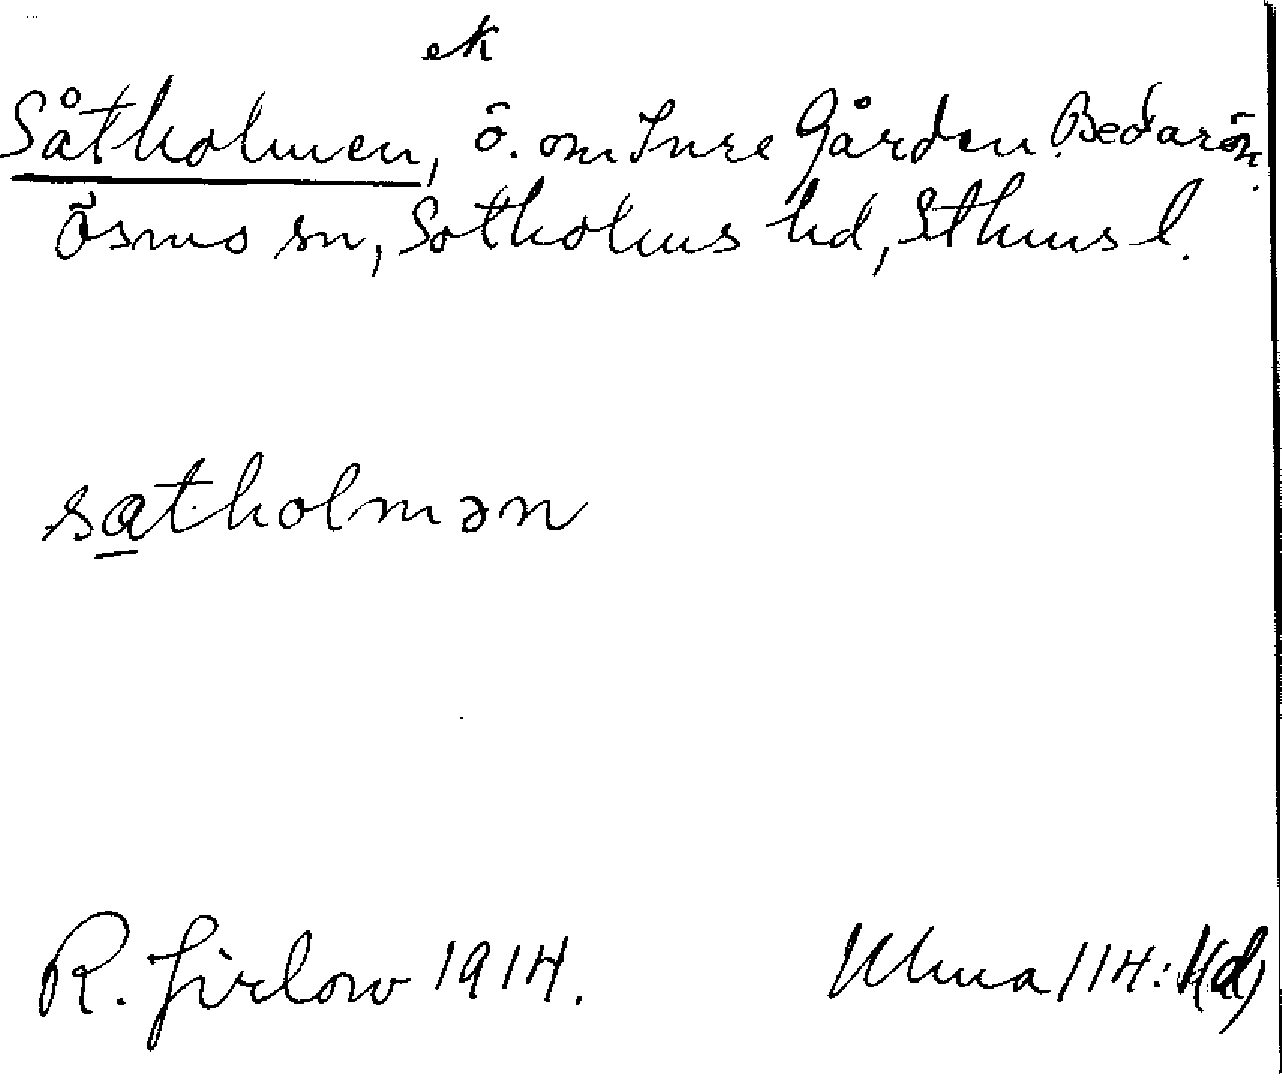 ek
Såtholmen, ö. om Inre Gården Bedarön.
Ösmo sn, Sotholms hd, Sthms l.
satholmən
R. Jirlow 1914.
Ulma 114:1(d)